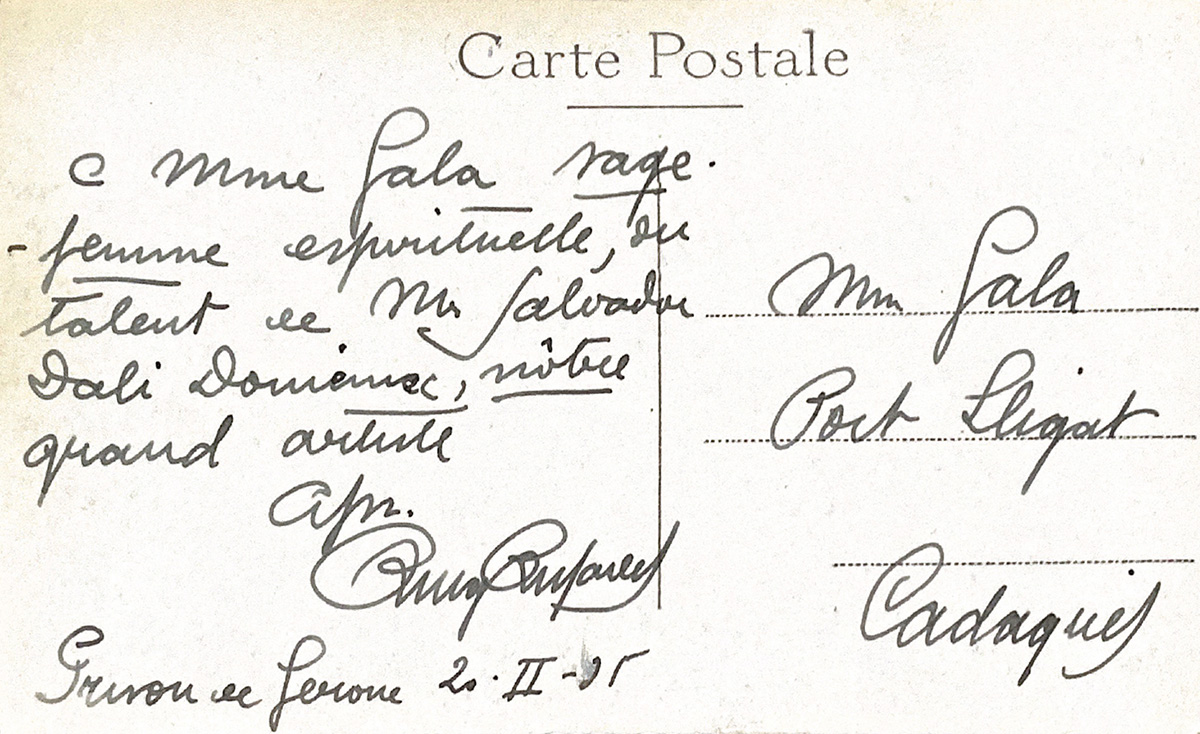 Carte Postale
Mme Gala sage-
-femme espirituelle, du
talent de Mr Salvador
Dali Domènec, nôtre
grand artiste
Puig Pujades
Prison de Gerone 20·II-35
Mm Gala
Port Lligat
Cadaqués